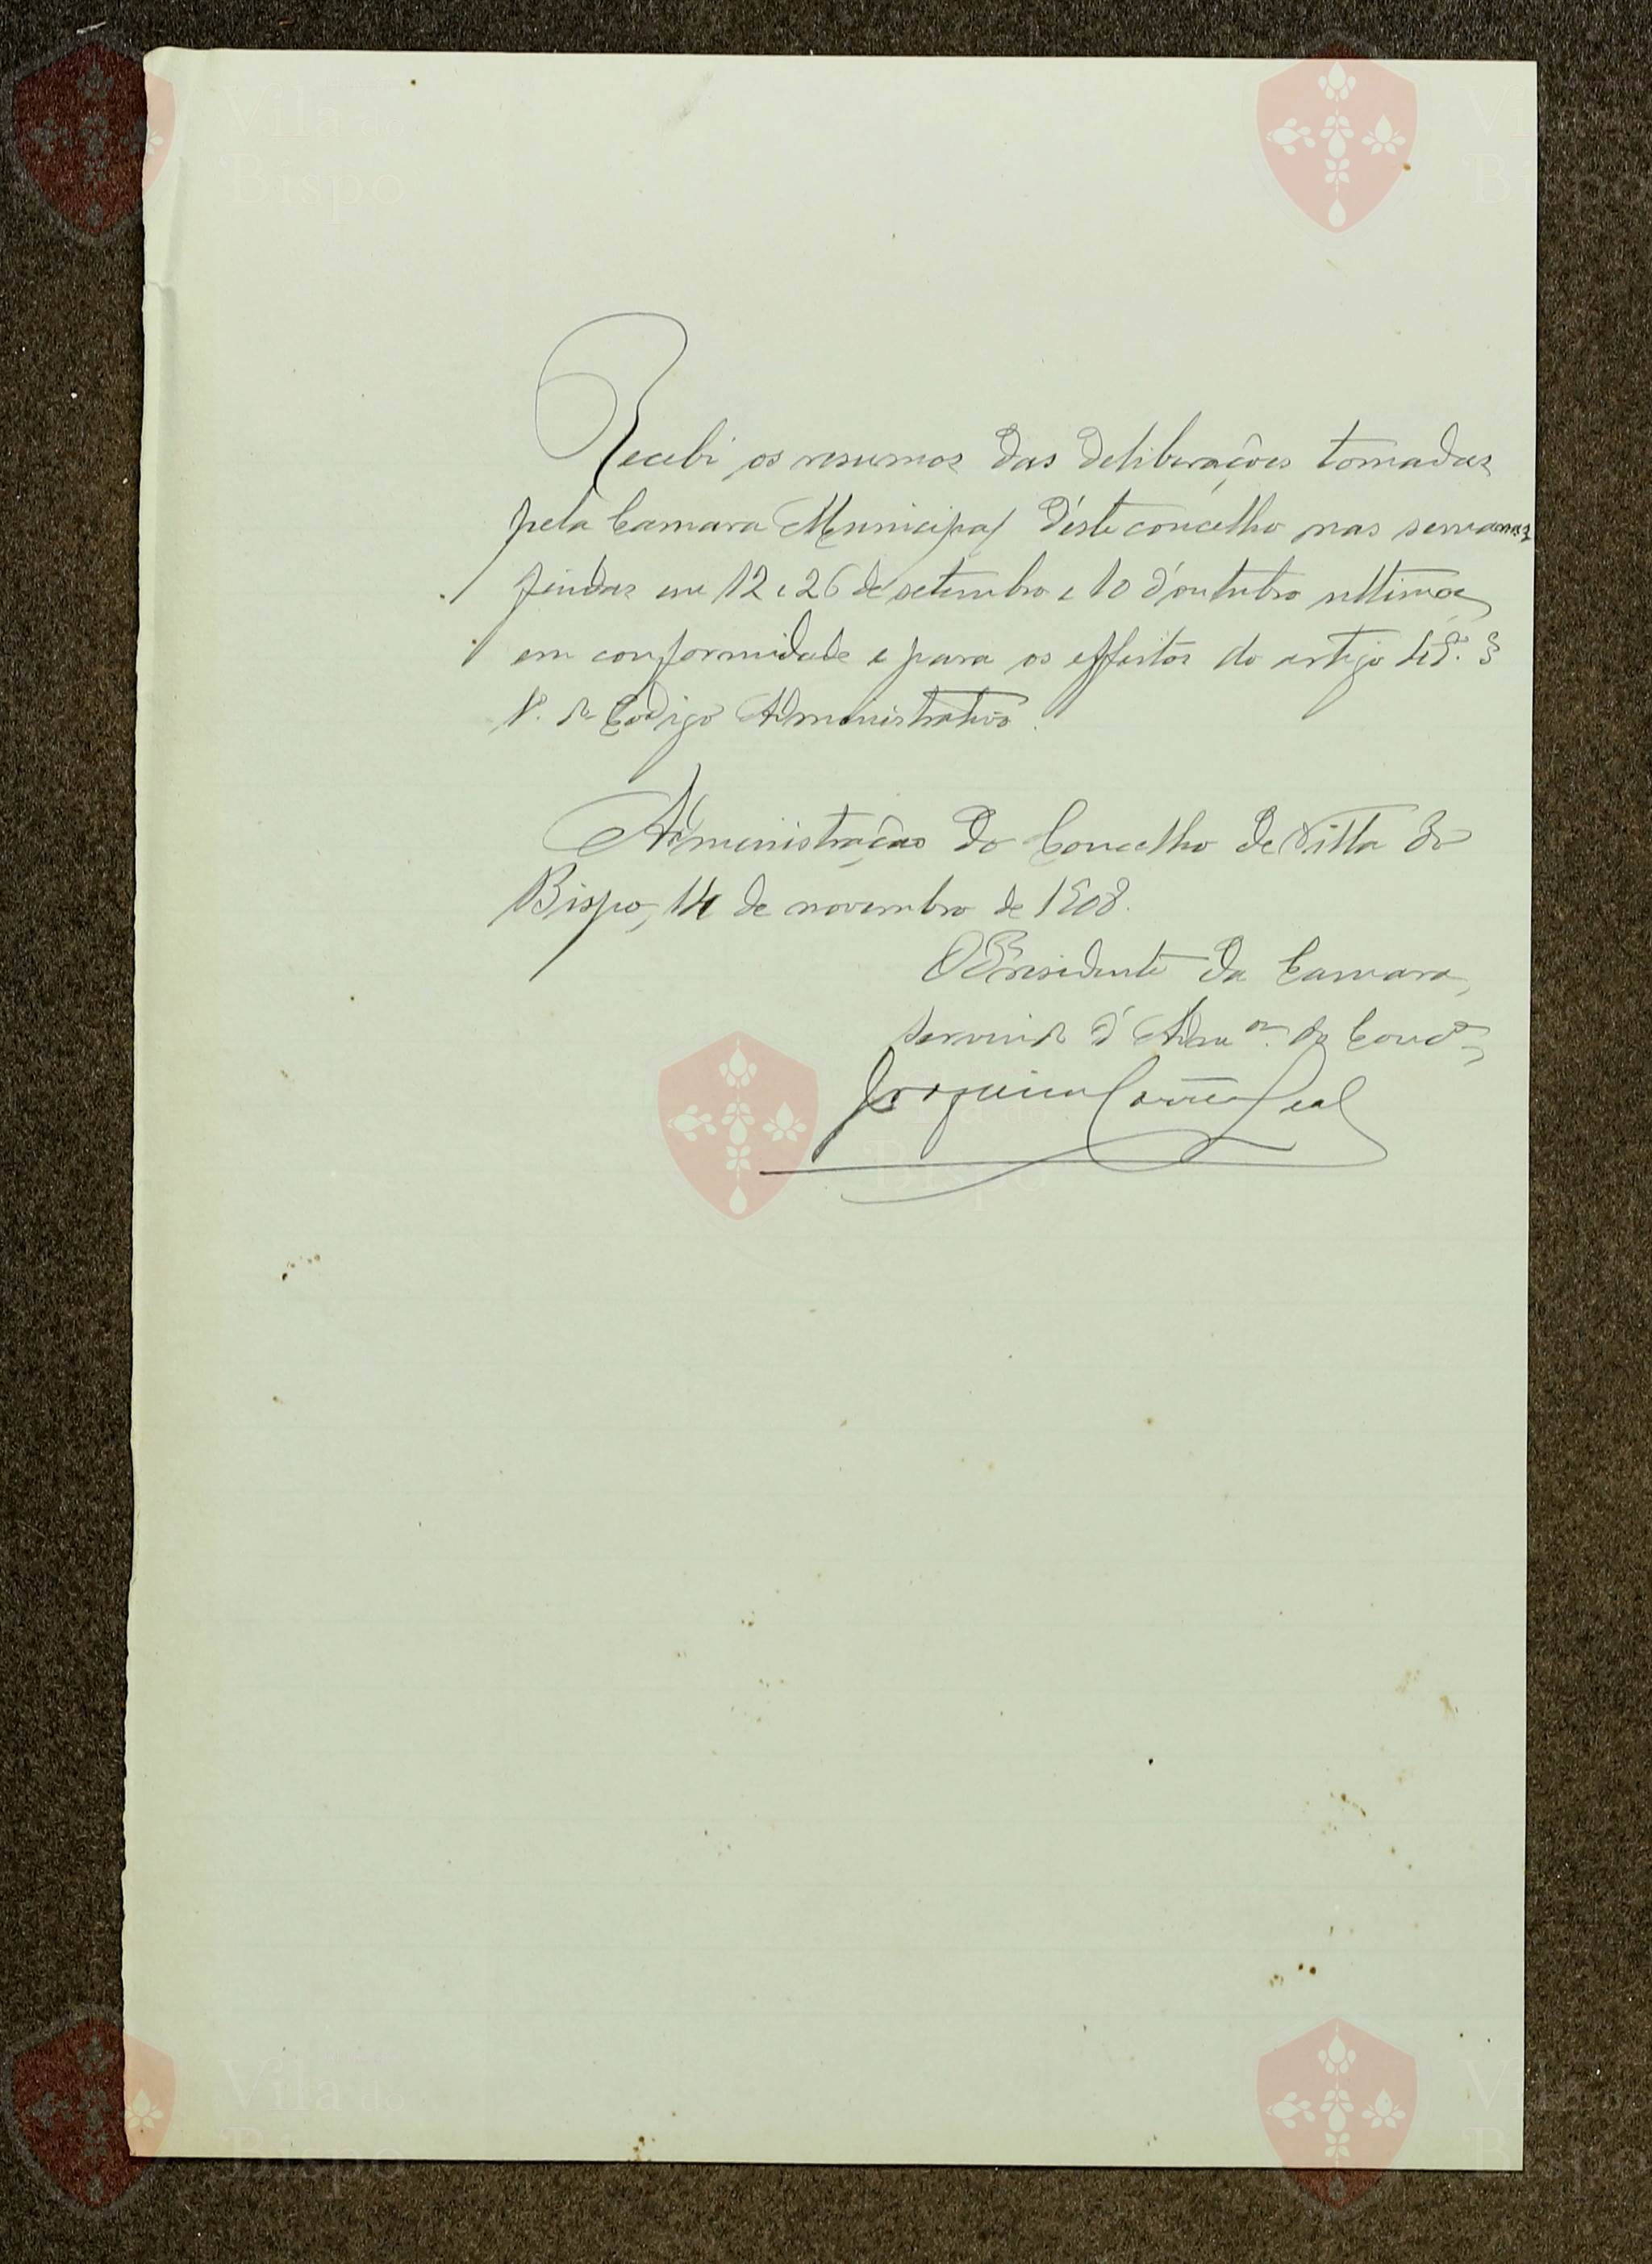 Recebi os resumos das deliberações tomadas
pela Camara Municipal d'este concelho nas semanas
findas em 12 e 26 de setembro e 10 d'outubro ultimos,
em conformidade e para os effeitos do artigo
do Codigo Administrativo.
Administração do Concelho de Villa do
Bispo, 14 de novembro de 1908.
O Presidente da Camara,
servindo d'Adm.or do Conc.o,
Joaquim Corrêa Leal
Vila do
Bispo